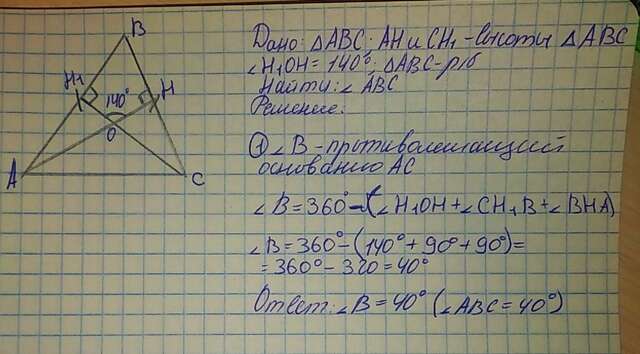 B
H₁
140°
H
O
A
C
Дано: △ABC; AH и CH₁ - высоты △ABC
∠H₁OH = 140°; △ABC - р/б
Найти: ∠ABC
Решение:
① ∠B - противолежащий
основанию AC
∠B = 360° - (∠H₁OH + ∠CH₁B + ∠BHA)
∠B = 360° - (140° + 90° + 90°) =
= 360° - 320 = 40°
Ответ: ∠B = 40° (∠ABC = 40°)